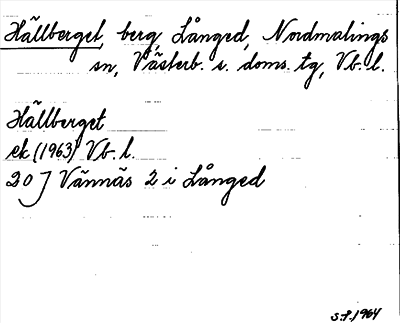 Hällberget, berg, Långed, Nordmalings
sn, Västerb. s. doms. tg, Vb. l.
Hällberget
ek (1963) Vb. l.
20 J Vännäs 2 i Långed
S.F. 1964